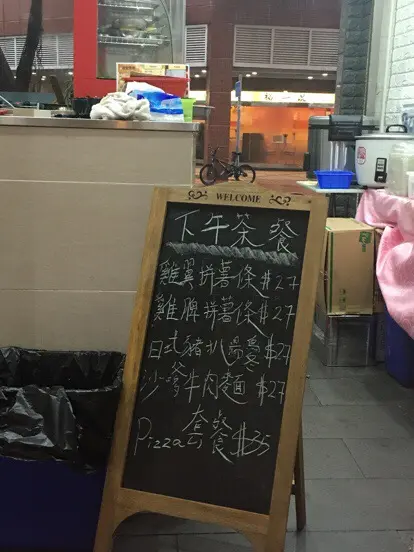 WELCOME
下午茶餐
雞翼拼薯條 $27
雞髀拼薯條 $27
日式豬扒烏冬 $27
沙爹牛肉麵 $27
Pizza套餐 $35